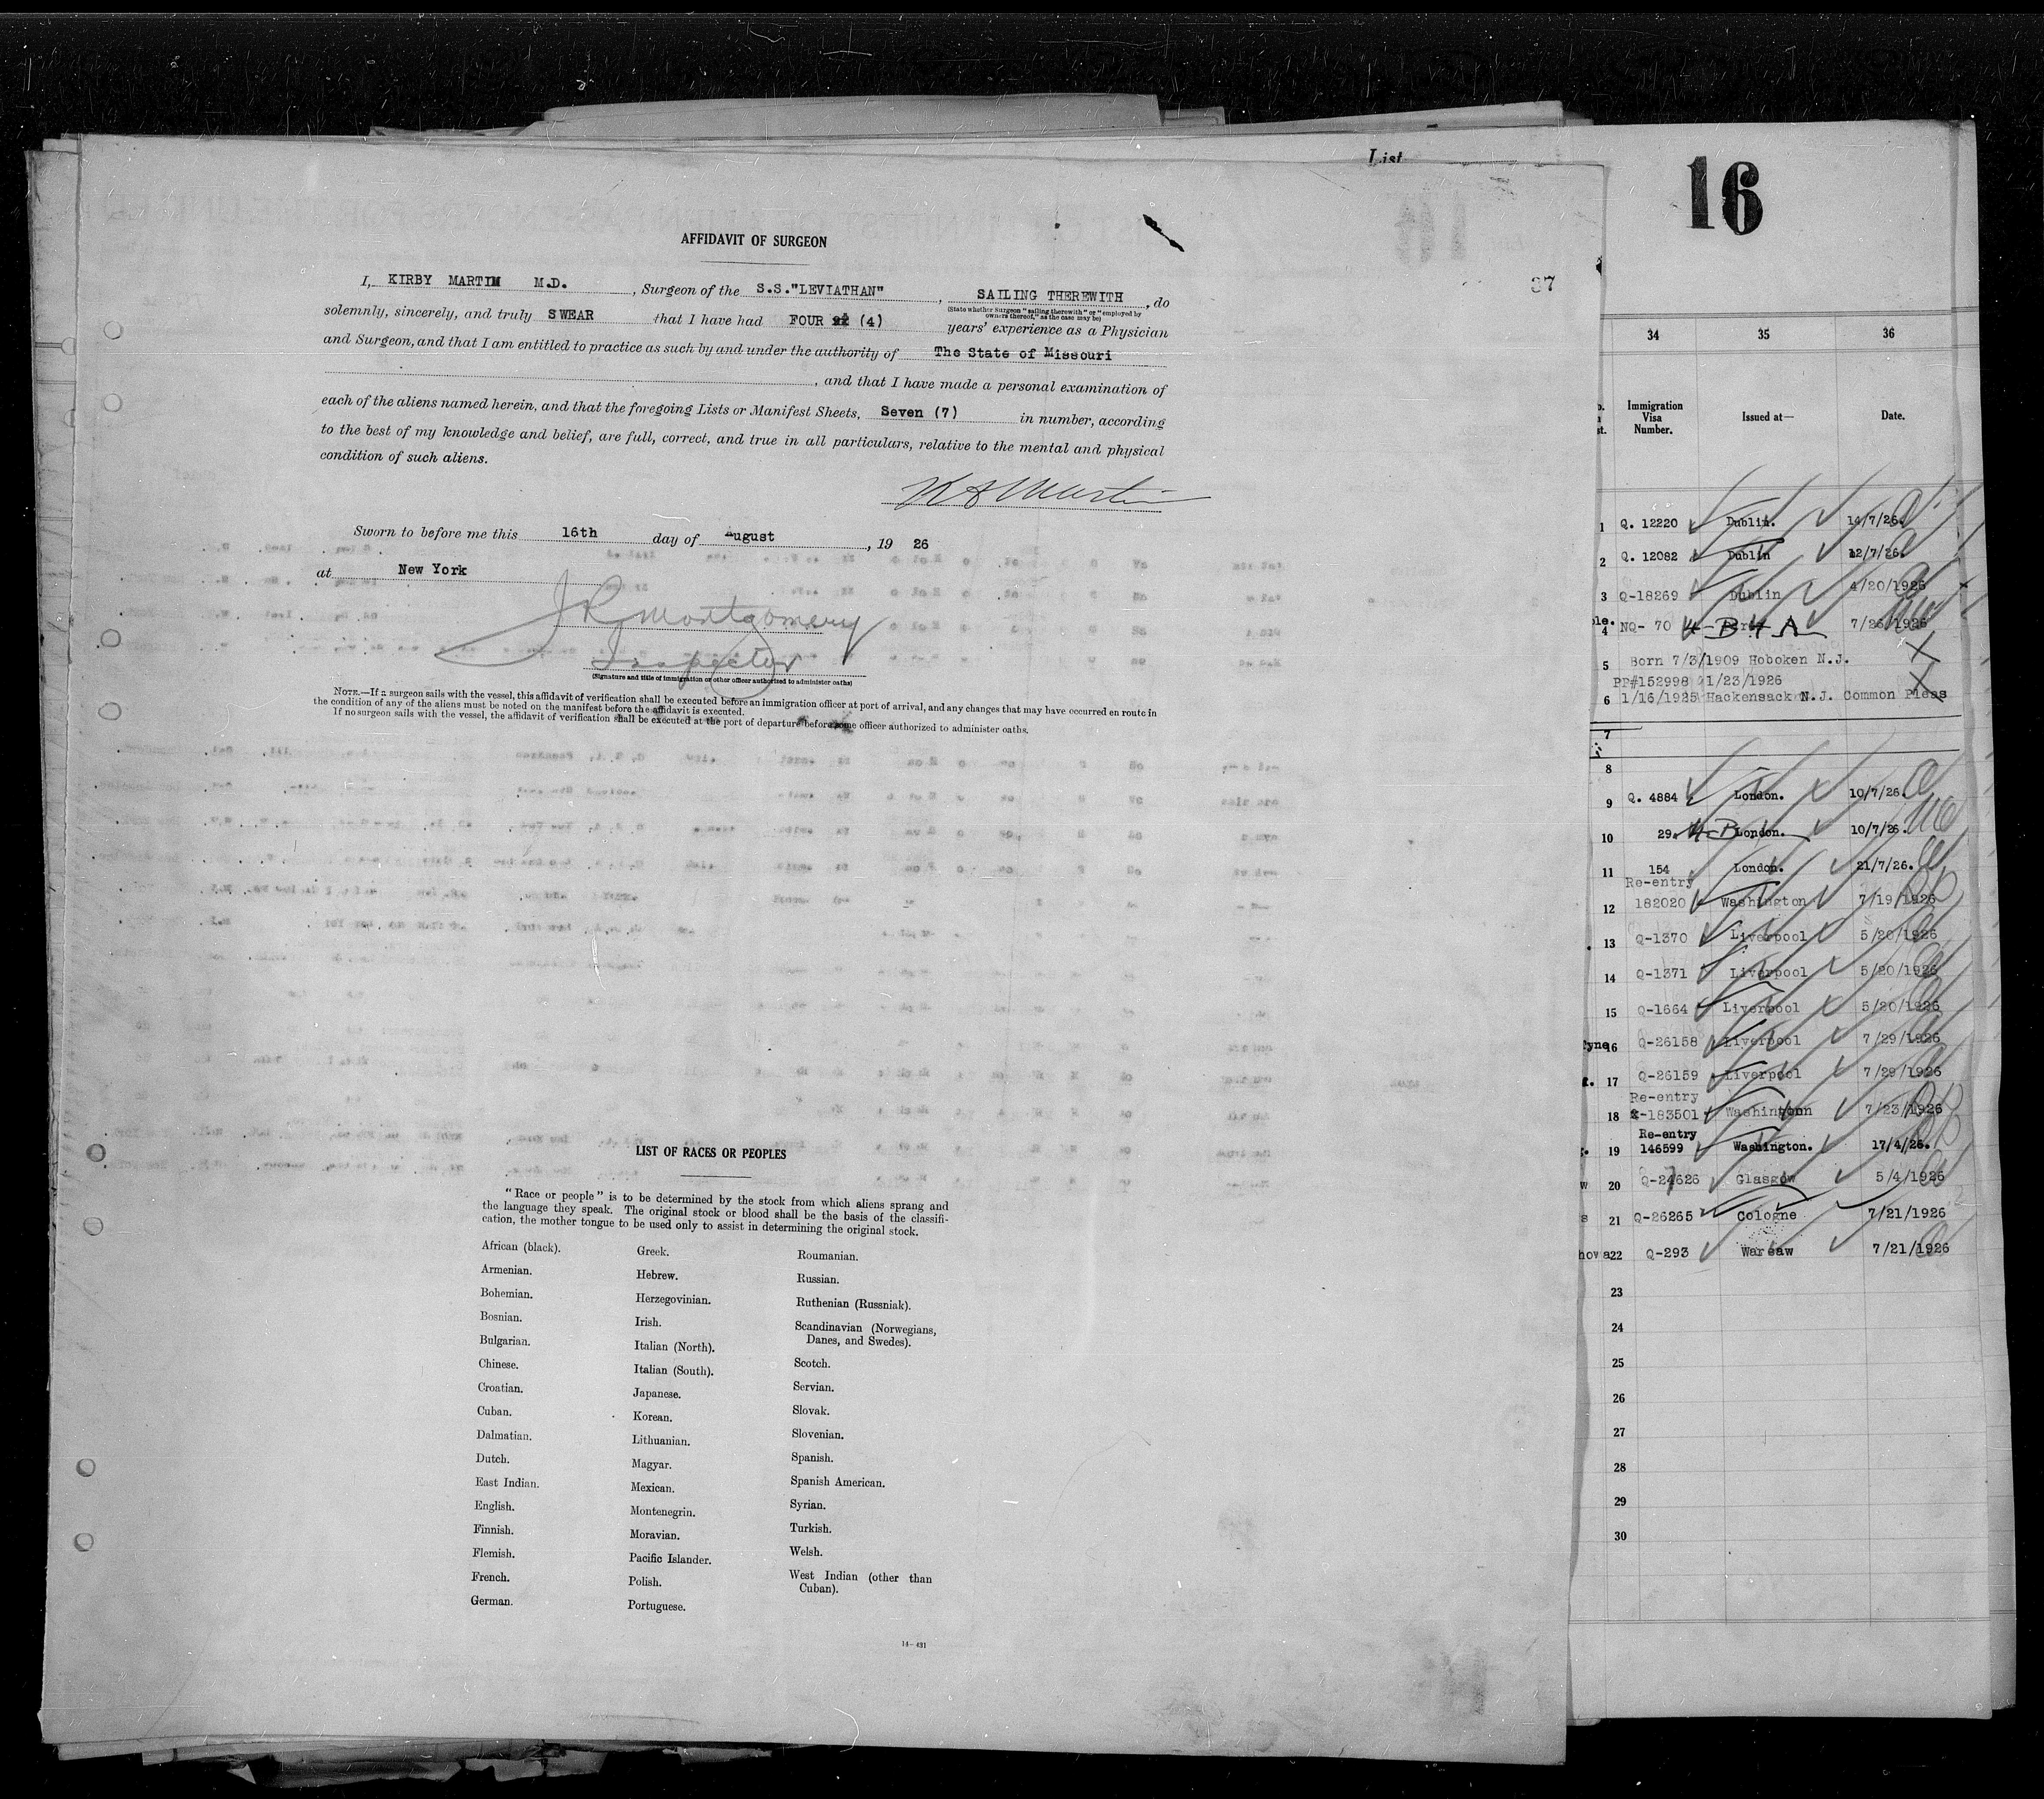 List
16
AFFIDAVIT OF SURGEON
37
I, KIRBY MARTIN M.D. , Surgeon of the S.S."LEVIATHAN" , SAILING THEREWITH , do
(State whether Surgeon "sailing therewith" or "employed by
owners thereof," as the case may be)
solemnly, sincerely, and truly SWEAR that I have had FOUR (4) years' experience as a Physician
and Surgeon, and that I am entitled to practice as such by and under the authority of The State of Missouri
, and that I have made a personal examination of
each of the aliens named herein, and that the foregoing Lists or Manifest Sheets, Seven (7) in number, according
to the best of my knowledge and belief, are full, correct, and true in all particulars, relative to the mental and physical
condition of such aliens.
Martin
Sworn to before me this 16th day of August , 19 26
at New York
J R Montgomery
Inspector
(Signature and title of immigration or other officer authorized to administer oaths)
NOTE.—If a surgeon sails with the vessel, this affidavit of verification shall be executed before an immigration officer at port of arrival, and any changes that may have occurred en route in
the condition of any of the aliens must be noted on the manifest before the affidavit is executed.
If no surgeon sails with the vessel, the affidavit of verification shall be executed at the port of departure before some officer authorized to administer oaths.
LIST OF RACES OR PEOPLES
"Race or people" is to be determined by the stock from which aliens sprang and
the language they speak. The original stock or blood shall be the basis of the classifi-
cation, the mother tongue to be used only to assist in determining the original stock.
African (black).
Armenian.
Bohemian.
Bosnian.
Bulgarian.
Chinese.
Croatian.
Cuban.
Dalmatian.
Dutch.
East Indian.
English.
Finnish.
Flemish.
French.
German.
Greek.
Hebrew.
Herzegovinian.
Irish.
Italian (North).
Italian (South).
Japanese.
Korean.
Lithuanian.
Magyar.
Mexican.
Montenegrin.
Moravian.
Pacific Islander.
Polish.
Portuguese.
Roumanian.
Russian.
Ruthenian (Russniak).
Scandinavian (Norwegians,
Danes, and Swedes).
Scotch.
Servian.
Slovak.
Slovenian.
Spanish.
Spanish American.
Syrian.
Turkish.
Welsh.
West Indian (other than
Cuban).
14—431
34 35 36
Immigration
Visa
Number.
Issued at—
Date.
1 Q. 12220 Dublin. 14/7/26.
2 Q. 12082 Dublin 12/7/26.
3 Q-18269 Dublin 4/20/1926
4 NQ- 70 7/26/1926
5 Born 7/3/1909 Hoboken N.J.
PP#152998 1/23/1926
6 1/16/1925 Hackensack N.J. Common Pleas
7
8
9 Q. 4884 London. 10/7/26.
10 29 London. 10/7/26.
11 154 London. 21/7/26.
Re-entry
12 182020 Washington 7/19/1926
13 Q-1370 Liverpool 5/20/1926
14 Q-1371 Liverpool 5/20/1926
15 Q-1664 Liverpool 5/20/1926
16 Q-26158 Liverpool 7/29/1926
17 Q-26159 Liverpool 7/29/1926
Re-entry
18 183501 Washintonn 7/23/1926
Re-entry
19 146599 Washington. 17/4/26.
20 Glasgow 5/4/1926
21 Q-26265 Cologne 7/21/1926
22 Q-293 Warsaw 7/21/1926
23
24
25
26
27
28
29
30